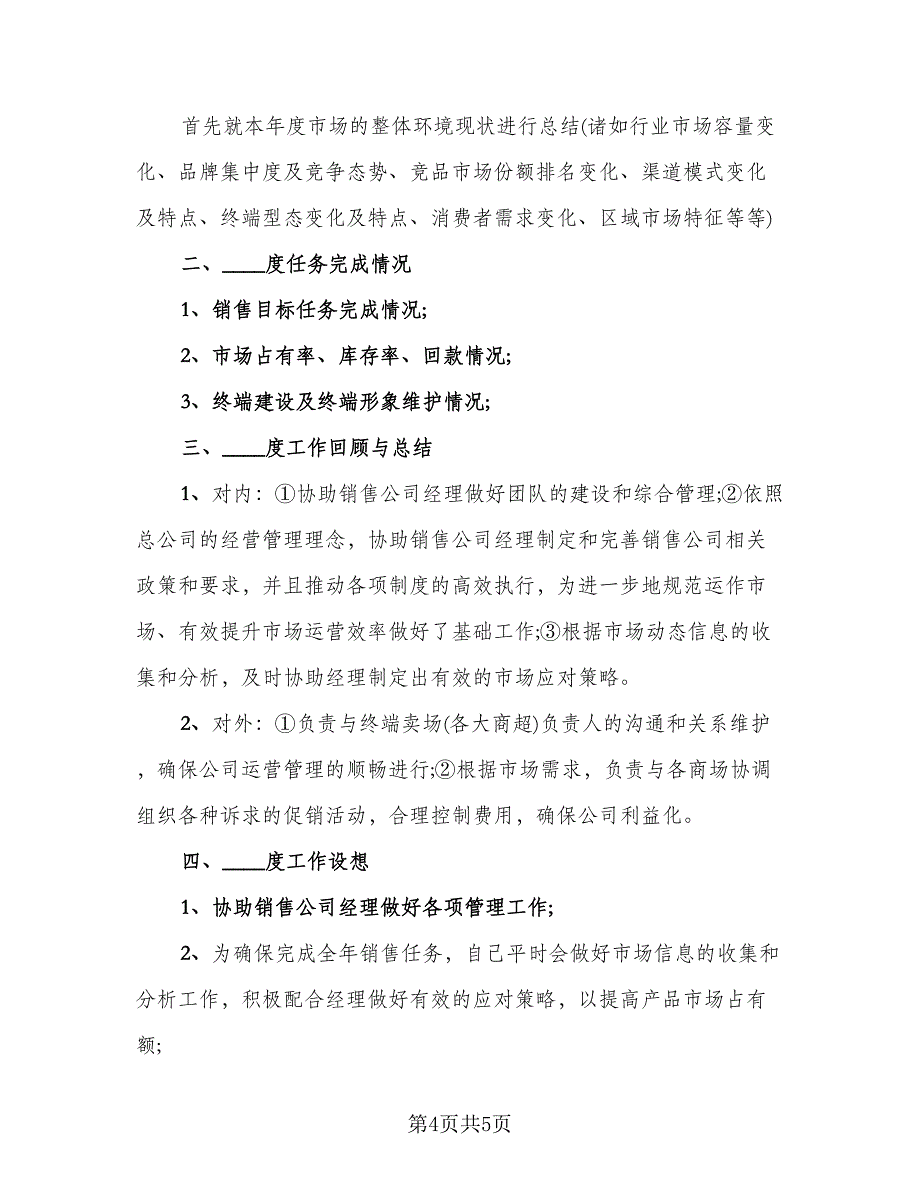 首先就本年度市场的整体环境现状进行总结(诸如行业市场容量变
化、品牌集中度及竞争态势、竞品市场份额排名变化、渠道模式变化
及特点、终端型态变化及特点、消费者需求变化、区域市场特征等等)
二、____度任务完成情况
1、销售目标任务完成情况;
2、市场占有率、库存率、回款情况;
3、终端建设及终端形象维护情况;
三、____度工作回顾与总结
1、对内：①协助销售公司经理做好团队的建设和综合管理;②依照
总公司的经营管理理念，协助销售公司经理制定和完善销售公司相关
政策和要求，并且推动各项制度的高效执行，为进一步地规范运作市
场、有效提升市场运营效率做好了基础工作;③根据市场动态信息的收
集和分析，及时协助经理制定出有效的市场应对策略。
2、对外：①负责与终端卖场(各大商超)负责人的沟通和关系维护
，确保公司运营管理的顺畅进行;②根据市场需求，负责与各商场协调
组织各种诉求的促销活动，合理控制费用，确保公司利益化。
四、____度工作设想
1、协助销售公司经理做好各项管理工作;
2、为确保完成全年销售任务，自己平时会做好市场信息的收集和
分析工作，积极配合经理做好有效的应对策略，以提高产品市场占有
额;
第4页共5页